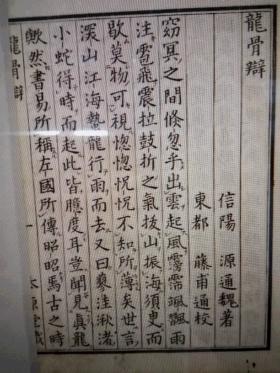 龍骨辯
信陽 源通魏著
東都 藤甫通校
窈冥之間倏忽乎出雲起風靄霈颯飄雨
注雹飛震拉鼓折之氣拔山振海須臾而
歇莫物可視惚惚怳怳不知所薄矣世言
深山江海蟄龍行雨而去又曰洼湫渚
小蛇得時而起此皆臆度耳豈聞見真龍
歟然書易所稱左國所傳昭昭焉古之時
龍骨辯 一